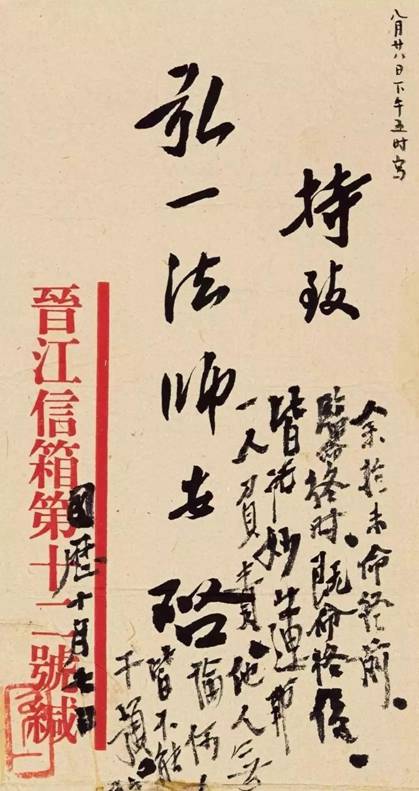 八月廿八日下午五时寫
持致
弘一法師安啓
余於未命終前。
臨命終時。既命終後。
皆托妙蓮師
一人負責。他人無
論何人
皆不能
干預。
國曆十月七日
晉江信箱第十二號緘